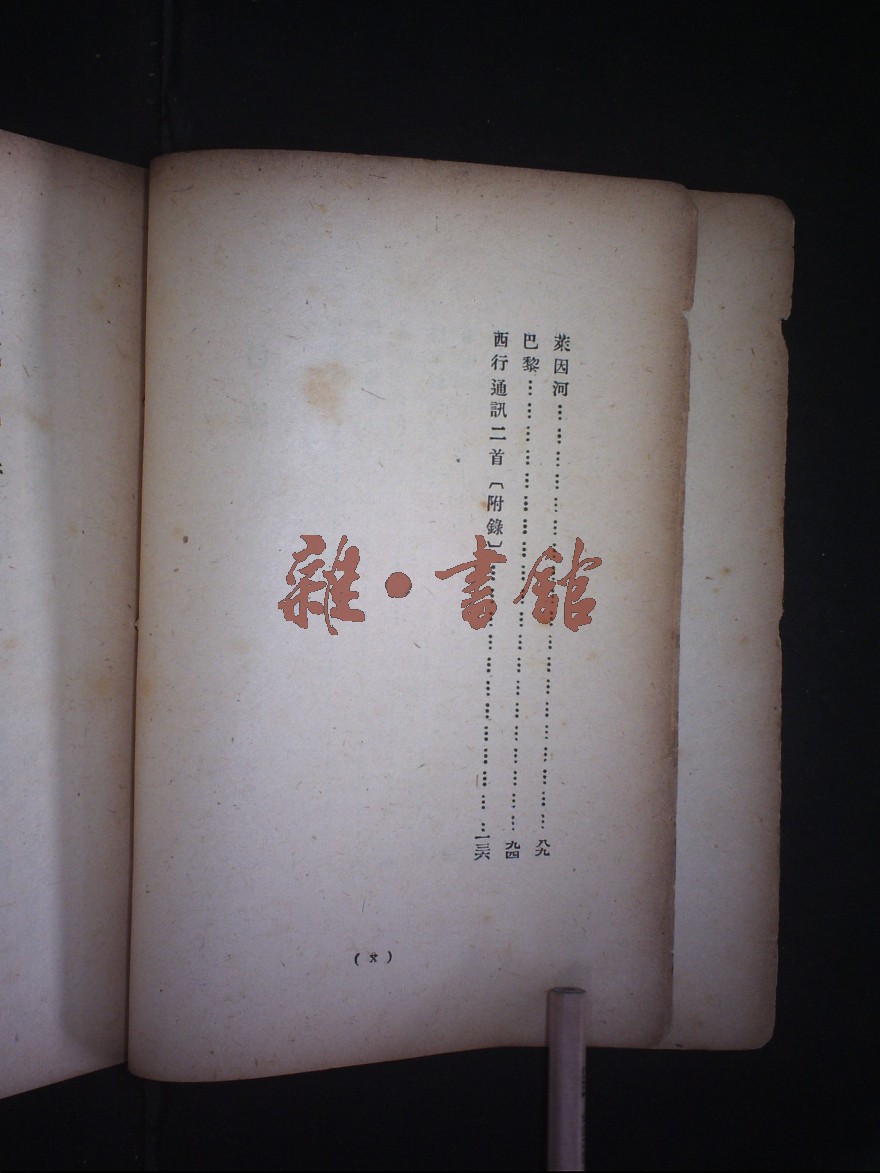 萊因河……………………………………………八九
巴黎……………………………………………九四
西行通訊二首〔附錄〕……………………………………一三六
雜·書館